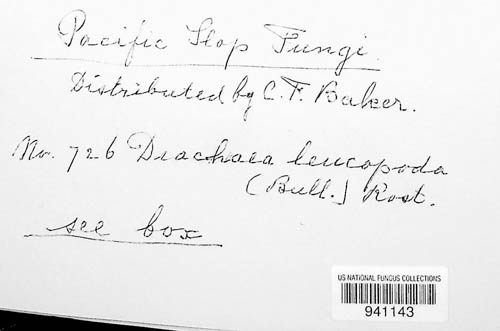 Pacific Slop Fungi.
Distributed by C. F. Baker.
No. 726 Diachaea leucopoda
(Bull.) Rost.
see box
US NATIONAL FUNGUS COLLECTIONS
941143